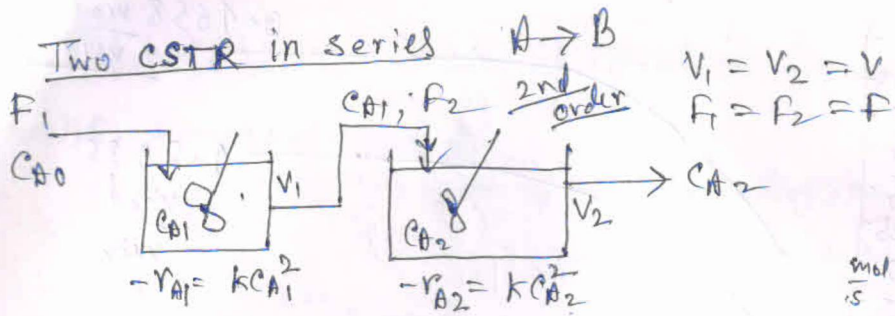 Two CSTR in series
A → B
2nd order
V₁ = V₂ = V
F₁ = F₂ = F
F₁
C_A0
C_A1, F₂
C_A1
V₁
C_A2
V₂
C_A2
-r_A1 = kC_A1²
-r_A2 = kC_A2²
mol/s